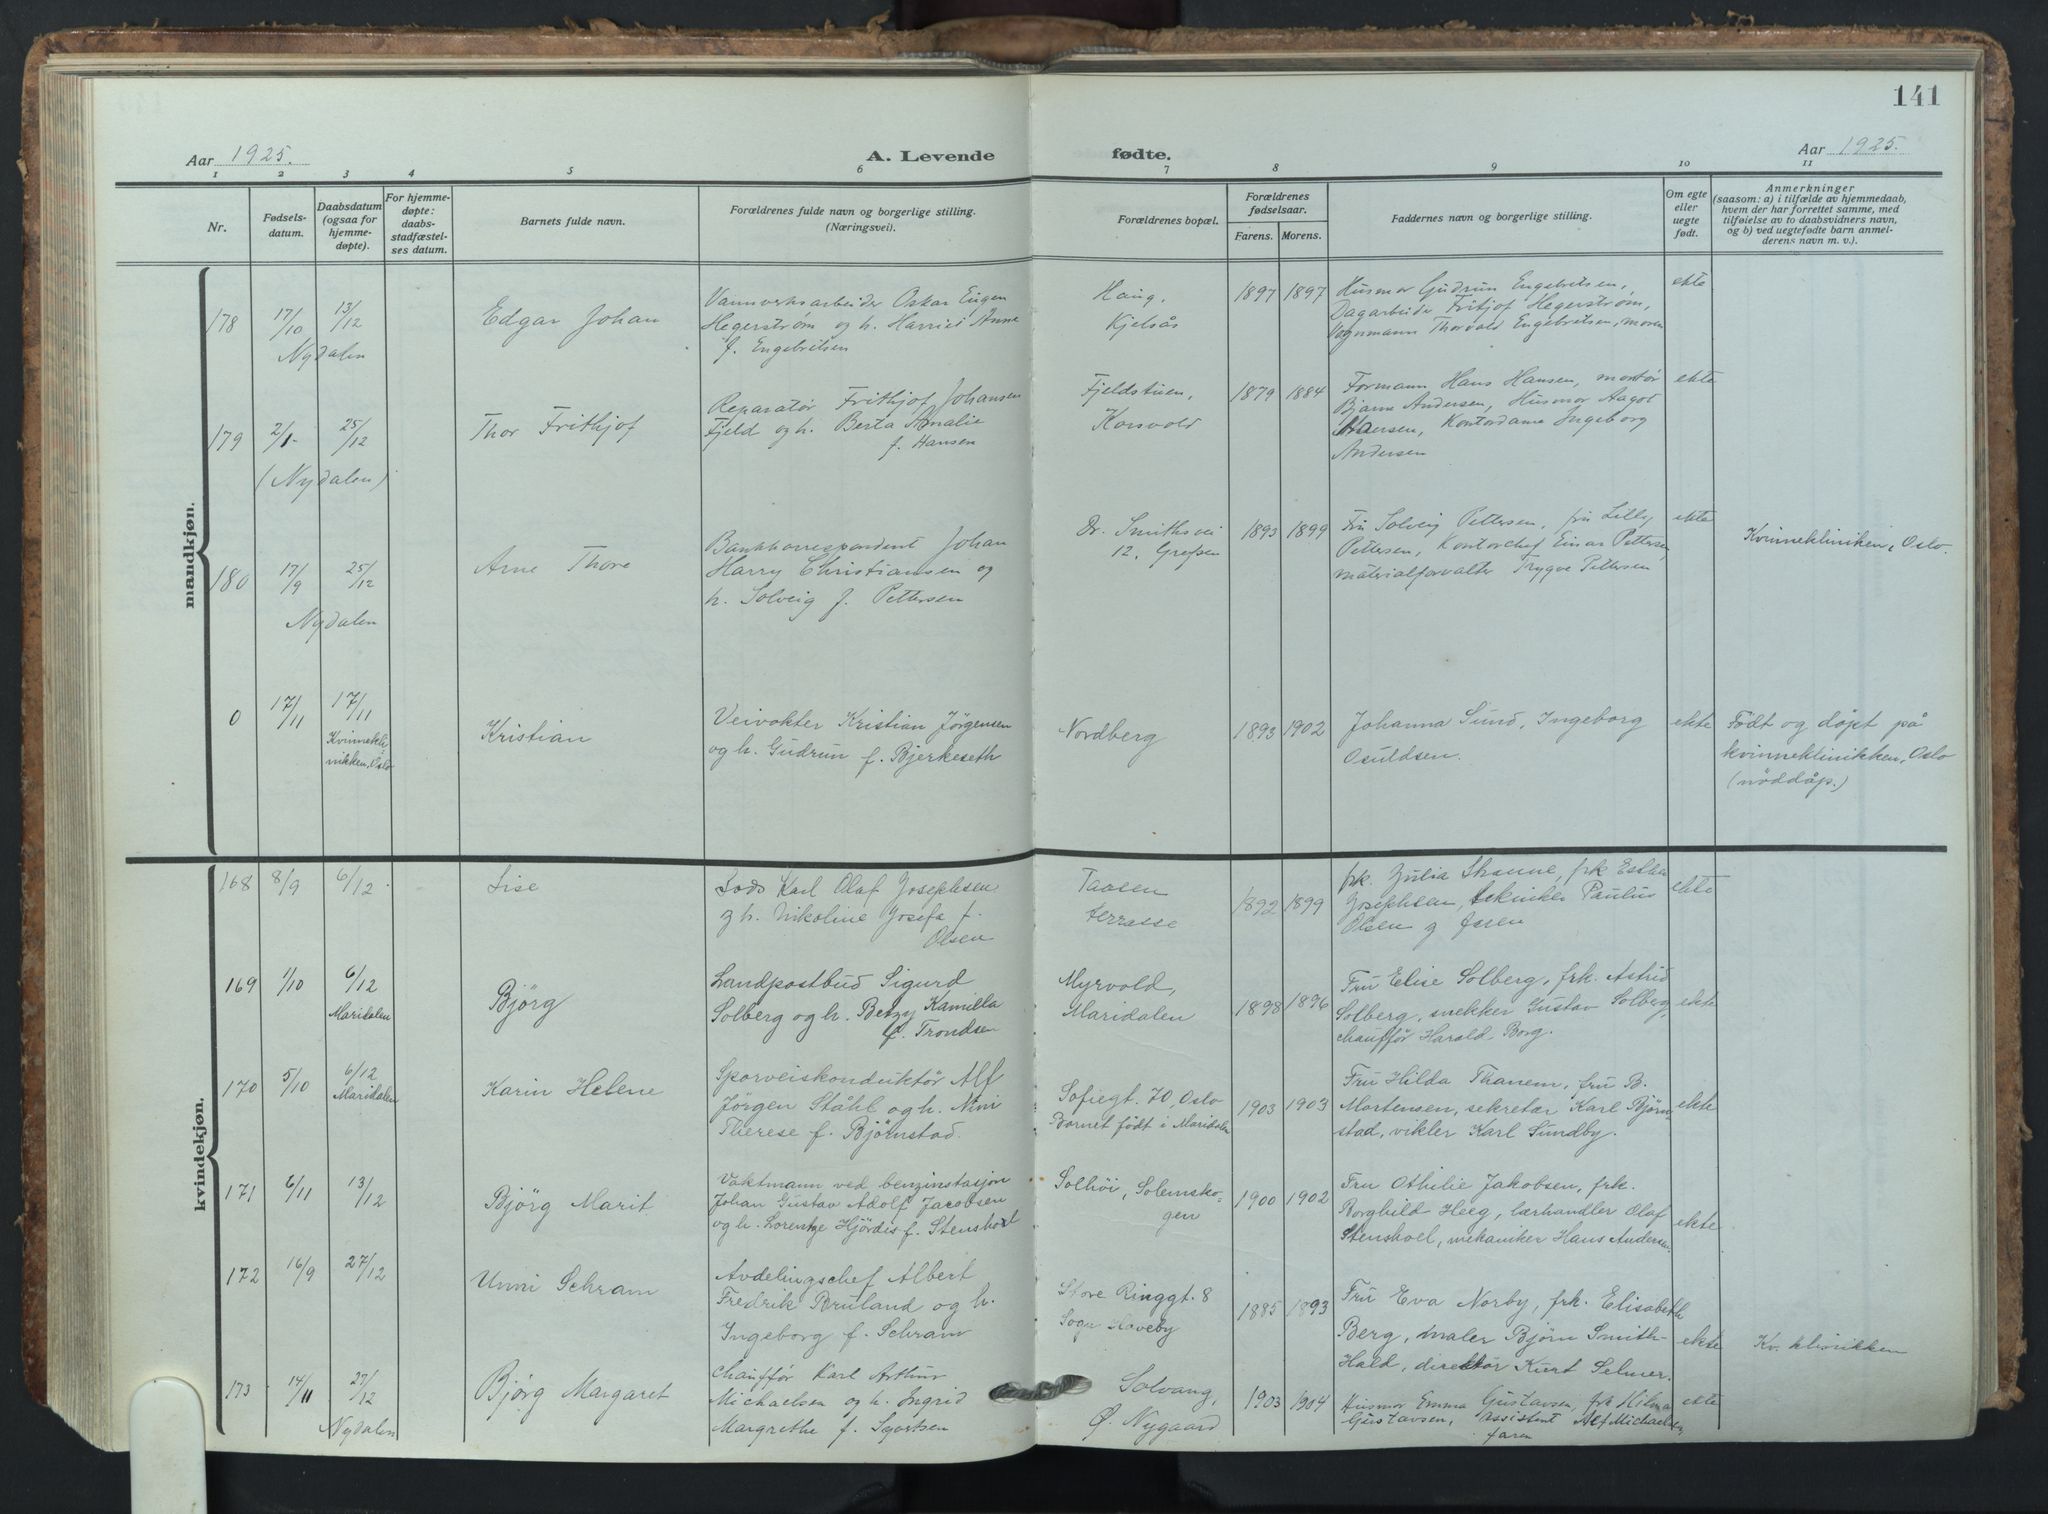 141
Aar 1925.
A. Levende fødte.
Aar 1925.
1 2 3 4 5 6 7 8 9 10 11
Nr.
Fødsels-
datum.
Daabsdatum
(ogsaa for
hjemme-
døpte).
For hjemme-
døpte:
daabs-
stadfæstel-
ses datum.
Barnets fulde navn.
Forældrenes fulde navn og borgerlige stilling.
(Næringsvei).
Forældrenes bopæl.
Forældrenes
fødselsaar.
Farens. Morens.
Faddernes navn og borgerlige stilling.
Om egte
eller
uegte
født.
Anmerkninger
(saasom: a) i tilfælde av hjemmedaab,
hvem der har forrettet samme, med
tilføielse av to daabsvidners navn,
og b) ved uegtefødte barn anmel-
derens navn m. v.).
mandkjøn.
178
17/10
13/12
Nydalen
Edgar Johan
Vannverksarbeider Oskar Eugen
Hegerstrøm og h. Harriet Anne
f. Engebritsen
Haug,
Kjelsås
1897 1897
Husmor Gudrun Engebritsen,
Dagarbeider Fritjof Hegerstrøm,
Vognmann Thorvald Engebritsen, moren
ekte
179
2/1
25/12
(Nydalen)
Thor Frithjof
Reparatør Frithjof Johansen
Fjeld og h. Berta Amalie
f. Hansen
Fjeldstuen,
Korsvold
1879 1884
Formann Hans Hansen, montør
Bjarne Andersen, Husmor Aagot
Hansen, Kontordame Ingeborg
Andersen
ekte
180
17/9
25/12
Nydalen
Arne Thore
Bankkorrespondent Johan
Harry Christiansen og
h. Solveig f. Pettersen
Dr. Smithsvei
12, Grefsen
1893 1899
Fru Solveig Pettersen, fru Lilly
Pettersen, Kontorchef Einar Pettersen,
materialforvalter Trygve Pettersen
ekte
Kvinnekliniken, Oslo.
0
17/11
17/11
Kvinnekli-
nikken, Oslo
Kristian
Veivokter Kristian Jørgensen
og h. Gudrun f. Bjerkeseth
Nordberg
1893 1902
Johanna Sund, Ingeborg
Osuldsen.
ekte
Født og døpt på
kvinneklinikken, Oslo
(nøddåp.)
kvindekjøn.
168
8/9
6/12
Lise
Lods Karl Olaf Josephsen
og h. Nikoline Josefa f.
Olsen
Taasen
terrasse
1892 1899
frk. Julia Stranne, frk Esther
Josephsen, tekniker Paulus
Olsen og faren
ekte
169
1/10
6/12
Maridalen
Bjørg
Landpostbud Sigurd
Solberg og h. Betzy Kamilla
f. Trondsen
Myrvold,
Maridalen
1898 1896
Fru Elise Solberg, frk. Astrid
Solberg, snekker Gustav Solberg,
chauffør Harald Borg.
ekte
170
5/10
6/12
Maridalen
Karin Helene
Sporveiskonduktør Alf
Jørgen Ståhl og h. Nini
Therese f. Bjørnstad.
Sofiegt. 70, Oslo
Barnet født i Maridalen
1903 1903
Fru Hilda Thanem, fru B.
Mortensen, sekretær Karl Bjørn-
stad, vikler Karl Sundby.
ekte
171
6/11
13/12
Bjørg Marit
Vaktmann ved benzinstasjon
Johan Gustav Adolf Jacobsen
og h. Lorentze Hjørdis f. Stenshoel
Solhøi, Solemsko-
gen
1900 1902
Fru Othilie Jakobsen, frk.
Borghild Heeg, lærhandler Olaf
Stenshoel, mekaniker Hans Andersen.
ekte
172
16/9
27/12
Unni Schram
Avdelingschef Albert
Fredrik Bruland og h.
Ingeborg f. Schram
Store Ringgt. 8
Sogn Haveby
1885 1893
Fru Eva Norby, frk. Elisabeth
Berg, maler Bjørn Smith-
Hald, direktør Kurt Selmer.
ekte
Kv. klinikken
173
14/11
27/12
Nydalen
Bjørg Margaret
Chauffør Karl Arthur
Michaelsen og h. Ingrid
Margrethe f. Syvertsen
Solvang,
Ø. Nygaard
1903 1904
Husmor Emma Gustavsen, frk Hilma
Gustavsen, Assistent Alf Michaelsen,
faren
ekte